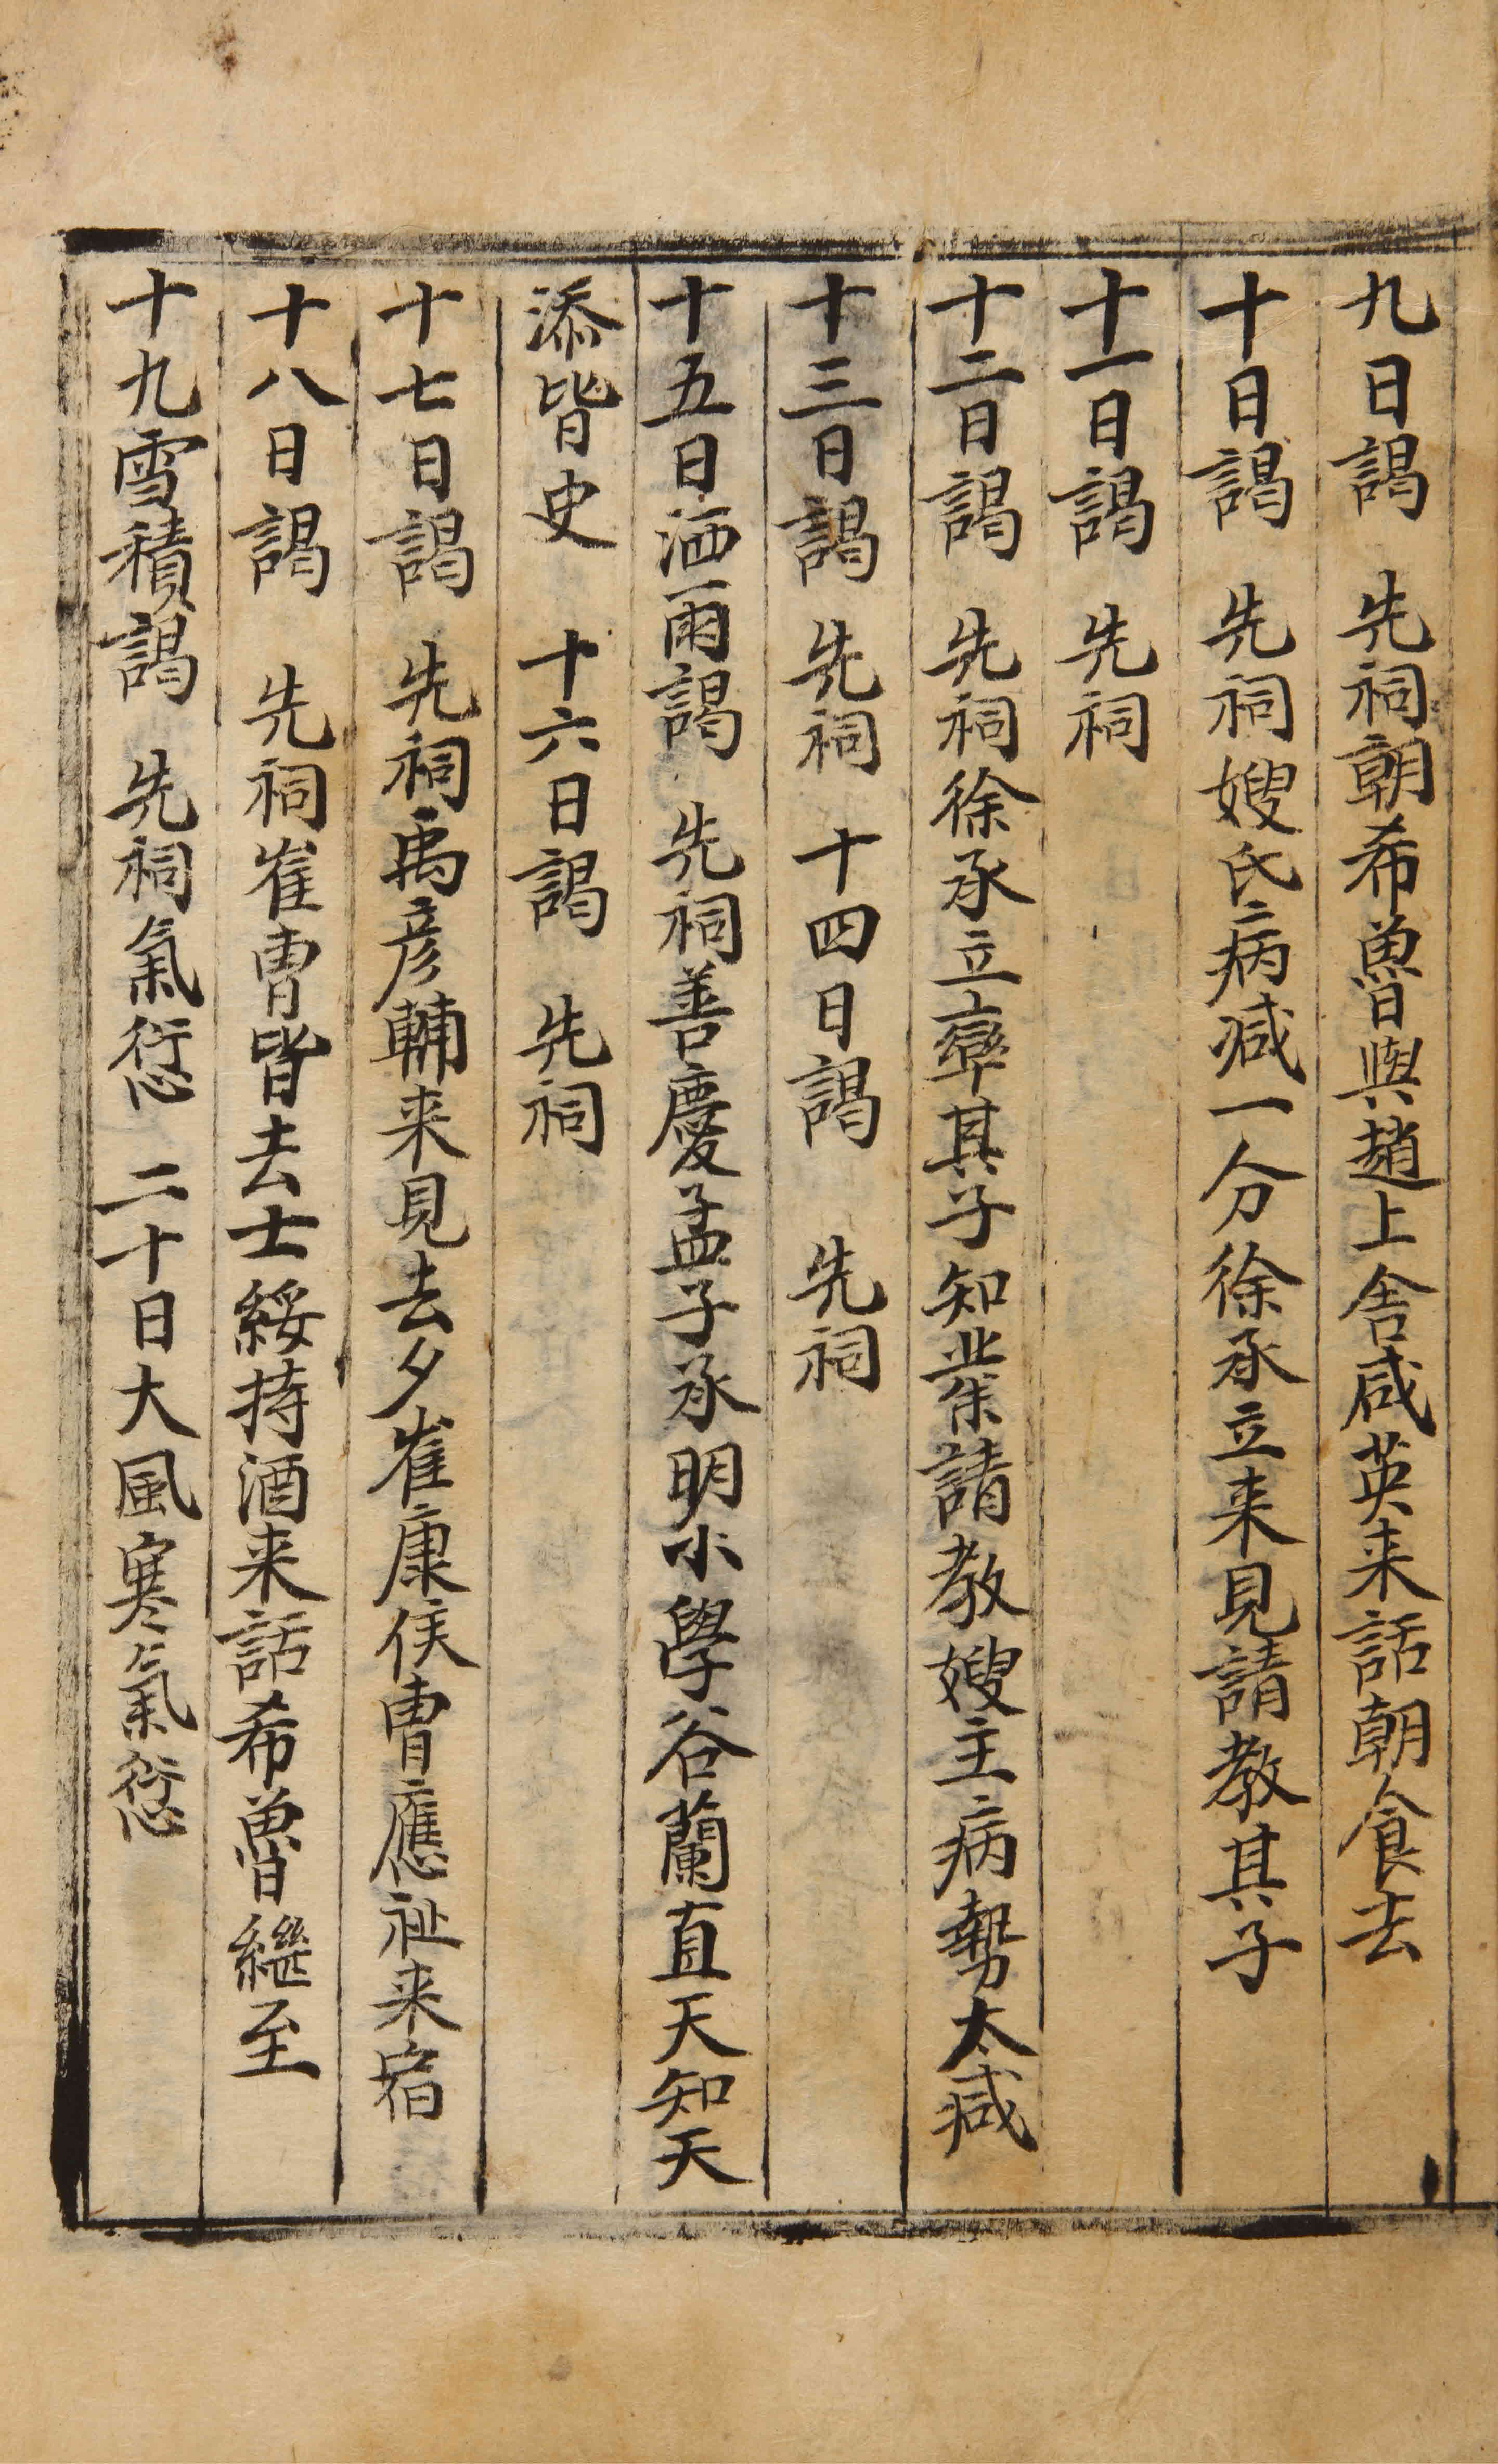 九日謁 先祠朝希魯與趙上舍咸英来話朝食去
十日謁 先祠嫂氏病减一分徐承立来見請教其子
十一日謁 先祠
十二日謁 先祠徐承立率其子知業請教嫂主病勢太减
十三日謁 先祠 十四日謁 先祠
十五日洒雨謁 先祠善慶孟子承明小學谷蘭直天知天
添皆史 十六日謁 先祠
十七日謁 先祠禹彦輔来見去夕崔康侯曺應祉来宿
十八日謁 先祠崔曺皆去士綏持酒来話希魯繼至
十九雪積謁 先祠氣愆 二十日大風寒氣愆